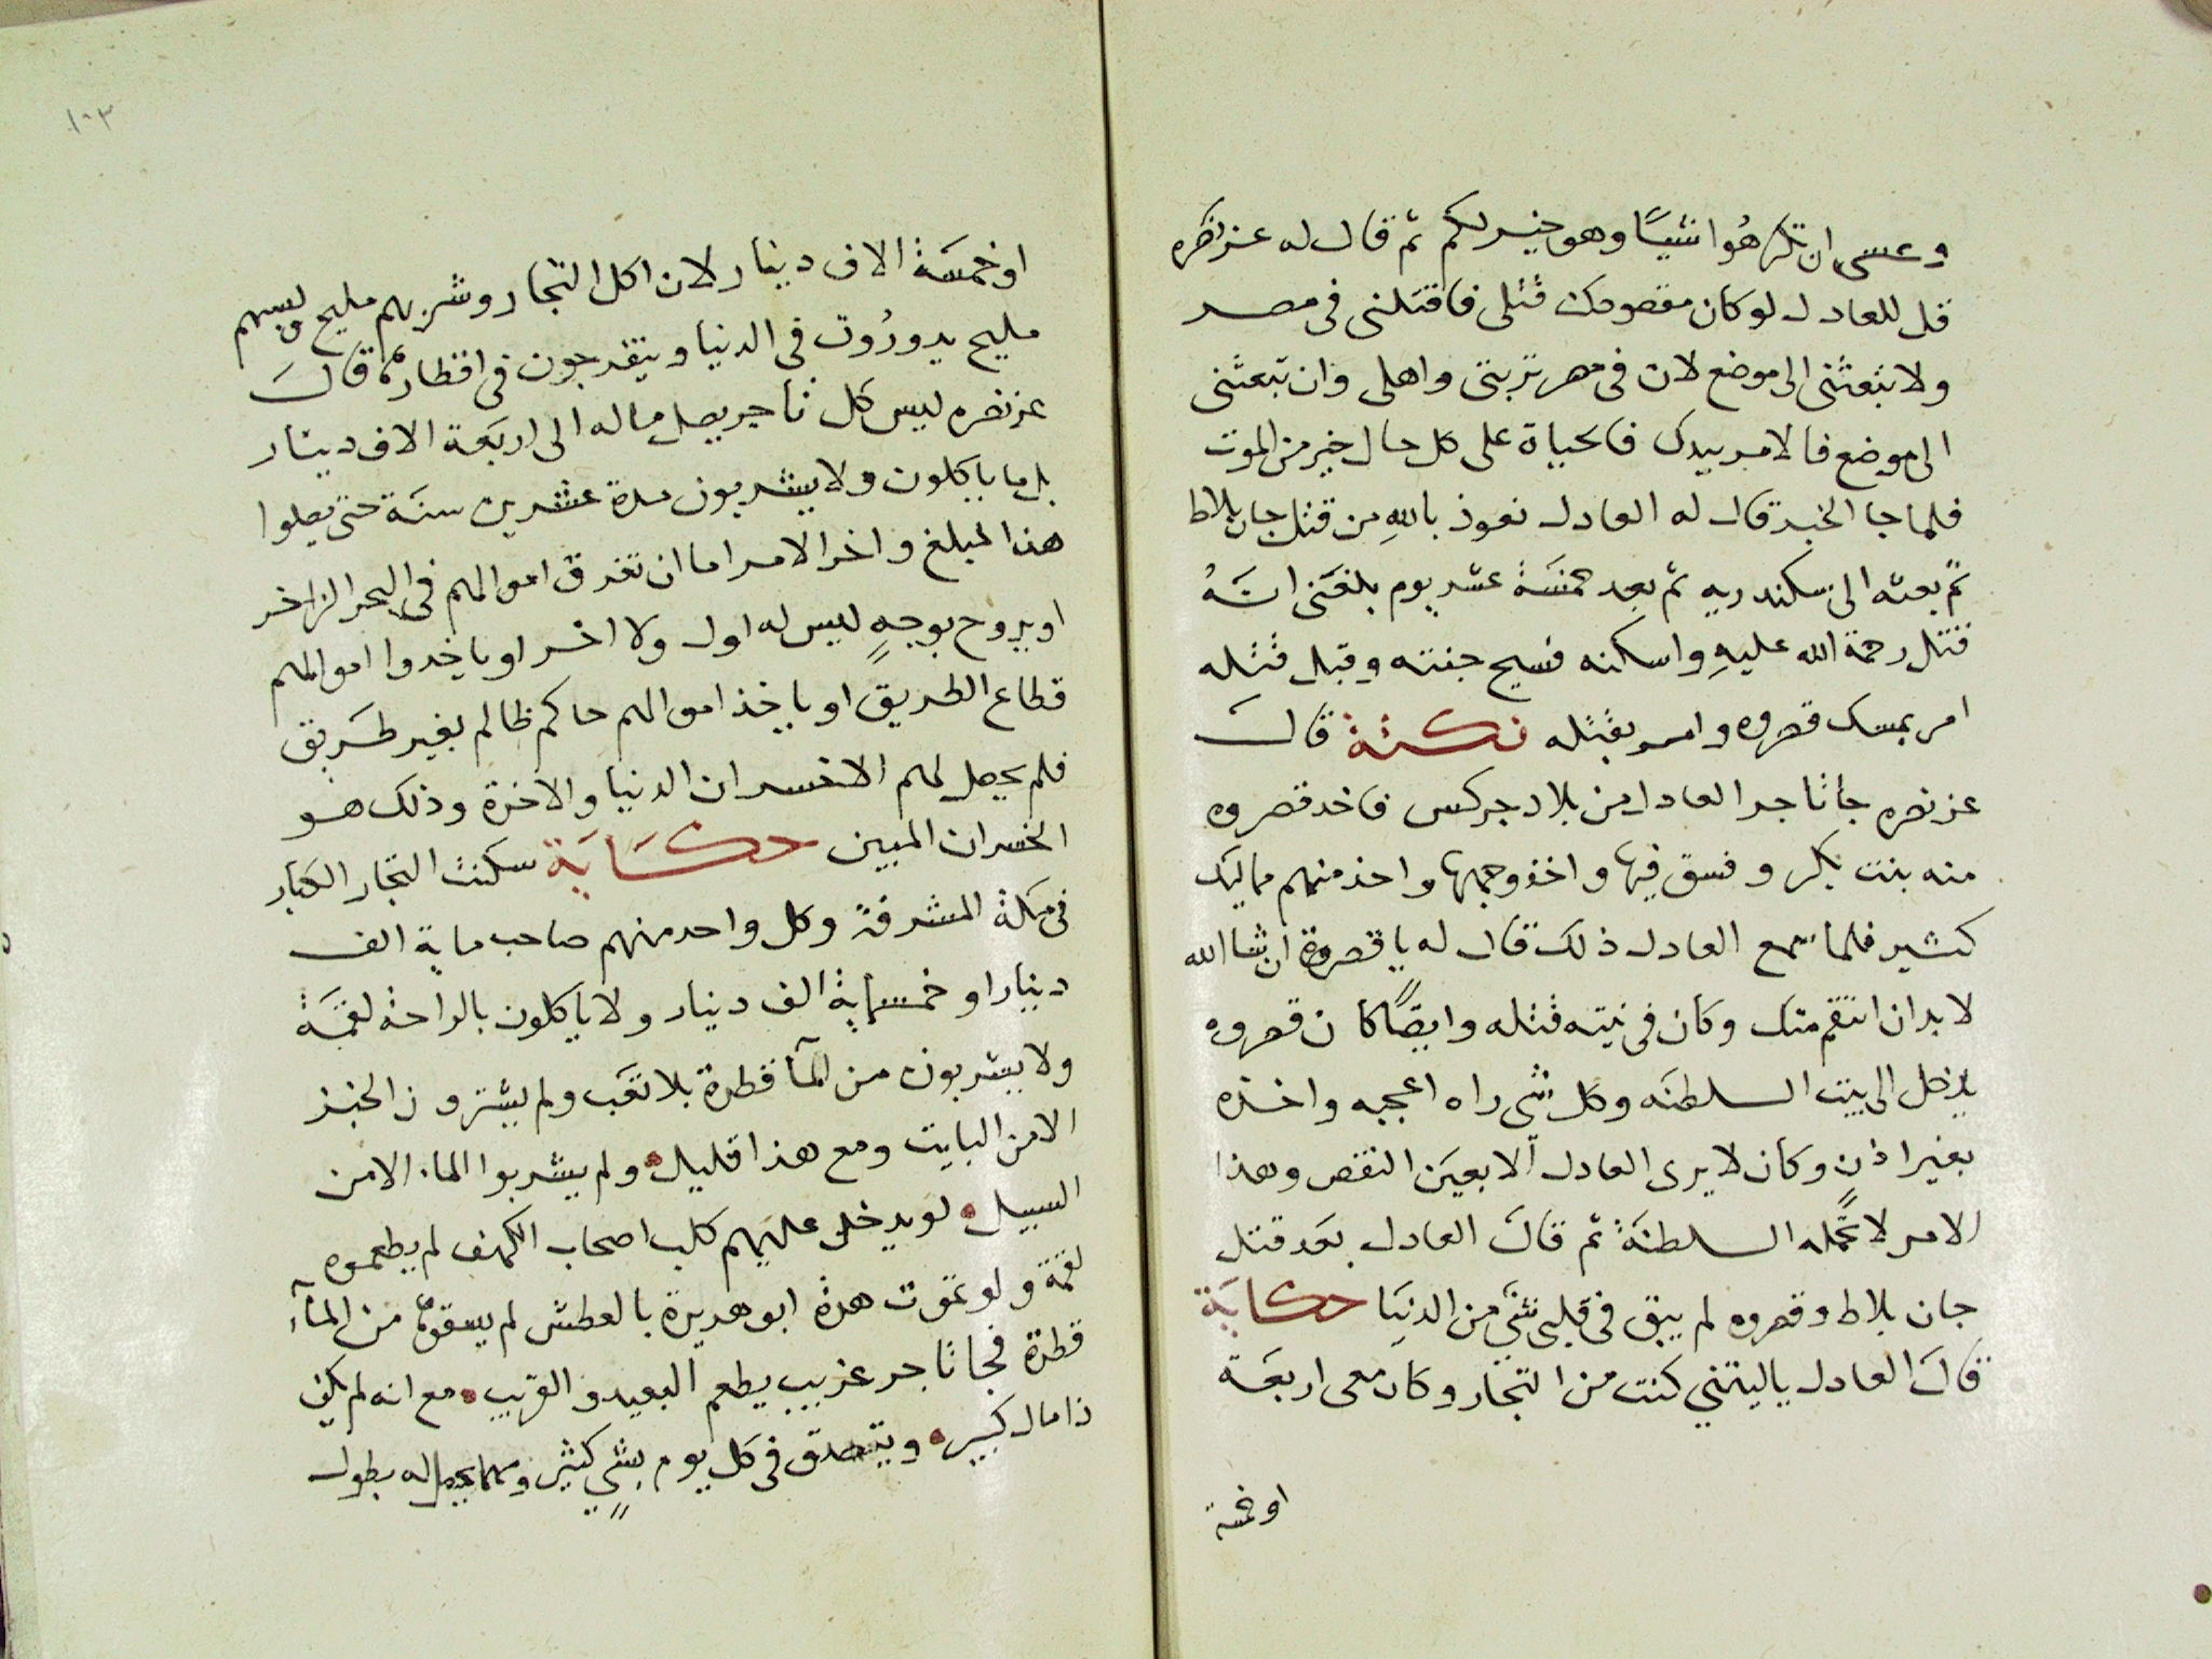 وعسى ان تكرهُوا شيًا وهو خير لكم ثم قال له عز نصره
قل للعادل لو كان مقصودك قتلى فاقتلنى فى مصر
ولا تبعثنى الى موضع لان فى مصر تربتى واهلى وان تبعثنى
الى موضع فالامر بيدك فالحياة على كل حال خير من الموت
فلما جا الخبر قال له العادل نعوذ باللهِ من قتل جان بلاط
ثم بعثه الى سكندريه ثم بعد خمسَة عشر يوم بلغَنى انهُ
قتل رحمة الله عليهِ واسكنه فسيح جنته وقبل قتله
امر بمسك قصروه وامر بقتله نكتة قالَ
عز نصره جا تاجر العادل من بلاد جركس فاخد قصروه
منه بنت بكر وفسق فيها واخذ وجهها واخذ منهم مماليك
كثير فلما سمع العادل ذلك قال له يا قصروة ان شا الله
لا بد ان انتقم منك وكان فى نيته قتله وايضًا كان قصروه
يدخل الى بيت السلطنَه وكل شى راه اعجبه واخذه
بغير اذن وكان لا يرى العادل الا بعيَن النقص وهذا
الامر لا تحمله السلطنَة ثم قالَ العادل بعَد قتل
جان بلاط وقصروه لم يبق فى قلبى شئ من الدنيَا حكايَة
قالَ العادل ياليتني كنت من التجار وكان معى اربعَة
او خمسة
١٠٣
او خمسَة الاف دينار لان اكل التجار وشربهم مليح ولبسهم
مليح يدورُون فى الدنيا ويتفرجون فى اقطارها قالَ
عز نصره ليس كل تاجر يصل ماله الى اربَعة الاف دينار
بل ما ياكلون ولا يشربون مدة عشرين سنَة حتى يصلوا
هذا المبلغ واخر الامر اما ان تغرق اموالهم فى البحر الزاخر
او يروح بوجهٍ ليس له اول ولا اخر او ياخدوا اموالهم
قطاع الطريق او ياخذ اموالهم حاكم ظالم بغير طَريق
فلم يحصل لهم الا خسران الدنيا والاخرة وذلك هو
الخسران المبين حكَايَة سكنت التجار الكبار
فى مكة المشرفة وكل واحد منهم صاحب ماية الف
دينار او خمسماية الف دينار ولا ياكلون بالراحة لقمَة
ولا يشربون من المآ قطرة بلا تعَب ولم يشترون الخبز
الا من البايت ومع هذا قليل ولم يشربوا الماء الا من
السبيل لو يدخل عليهم كلب اصحاب الكهف لم يطعموه
لقمة ولو تموت هرة ابو هريرة بالعطش لم يسقوها من المآء
قطرة فجا تاجر غريب يطعم البعيد والقريب مع انه لم يكن
ذا مال كبير ويتصدق فى كل يوم بشيٍ كثير ومهما يحصل له يطول